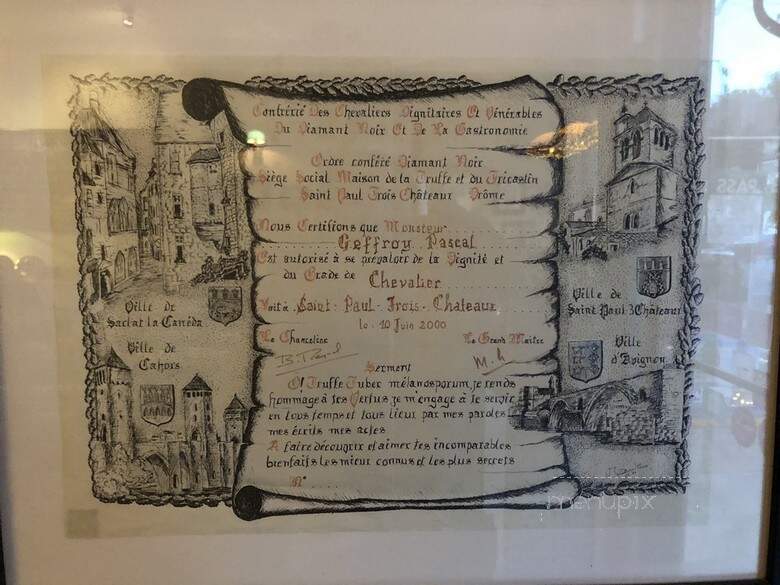 Confrérié Des Chevaliers Dignitaires Et Vénérables
Du Diamant Noir Et De La Gastronomie
Ordre conféré Diamant Noir
Siège Social Maison de la Truffe et du Tricastin
Saint Paul Trois Châteaux Drôme
Nous Certifions que Monsieur
Geffroy Pascal
Est autorisé à se prévaloir de la Dignité et
du Grade de Chevalier
Fait à Saint-Paul-Trois-Chateaux
le 10 Juin 2000
Le Chancelier
Le Grand Maître
Serment
O! Truffe Tuber mélanosporum, je rends
hommage à tes Vertus, je m'engage à te servir
en tous temps et tous lieux par mes paroles
mes écrits mes actes
A faire découvrir et aimer tes incomparables
bienfaits les mieux connus et les plus secrets
N°
Ville de
Sarlat la Canéda
Ville de
Cahors
Ville de
Saint Paul 3 Châteaux
Ville
d'Avignon
menupix